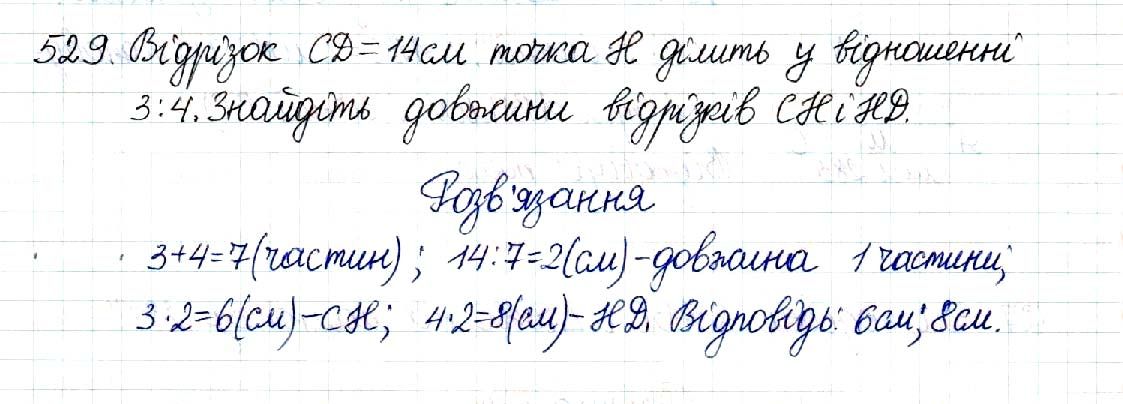 529. Відрізок СД=14см точка Н ділить у відношенні
3:4. Знайдіть довжини відрізків СН і НД.
Розв'язання
3+4=7(частин); 14:7=2(см)-довжина 1 частини;
3·2=6(см)-СН; 4·2=8(см)-НД. Відповідь: 6см; 8см.